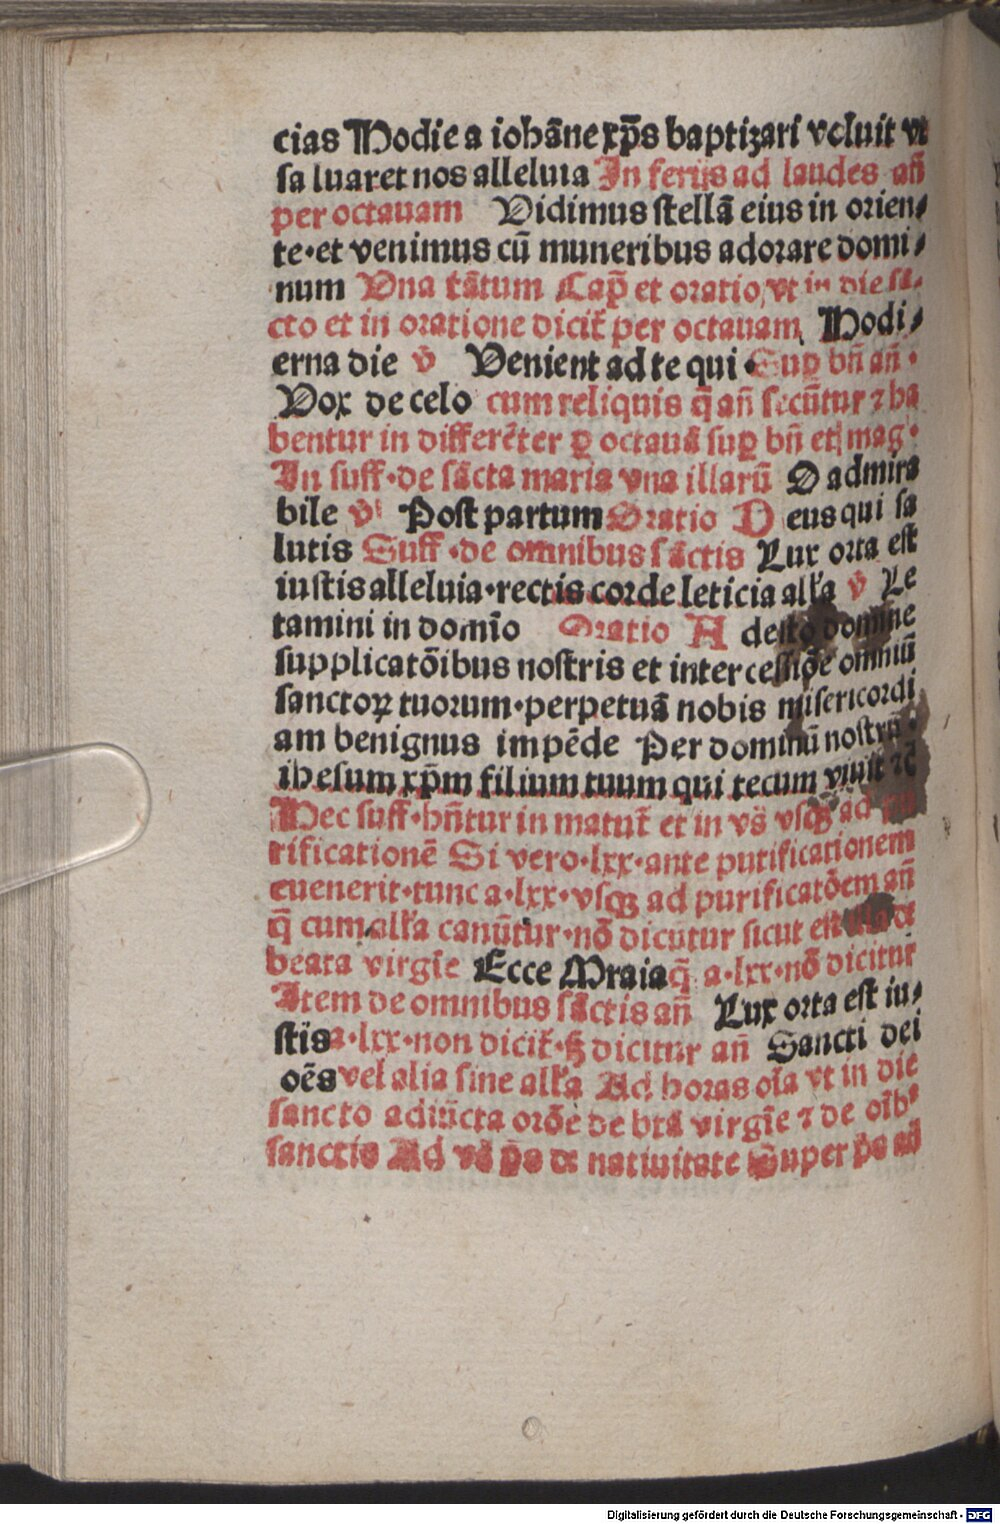 cias Hodie a iohāne xp̄s baptizari voluit vt
sa luaret nos alleluia In ferijs ad laudes añ
per octauam Vidimus stellā eius in orien⸗
te·et venimus cū muneribus adorare domi⸗
num Vna tātum Cap̄ et oratio vt in die sā⸗
cto et in oratione dicit̄ per octauam Hodi⸗
erna die v̄ Venient ad te qui· Sup bn̄ añ·
Vox de celo cum reliquis q̄ añ secūtur ⁊ ha
bentur in differēter ꝑ octauā suꝑ bn̄ et mag·
In suff·de sācta maria vna illarū O admira
bile v̄ Post partum Oratio D eus qui sa
lutis Suff·de omnibus sāctis Lux orta est
iustis alleluia·rectis corde leticia alľa v̄ Le
tamini in domīo Oratio A desto domine
supplicatōibus nostris et intercessiōe omniū
sanctoꝝ tuorum·perpetuā nobis misericordi
am benignus impēde Per dominū nostrū·
ihesum xp̄m filium tuum qui tecum viuit ⁊c̄
Hec suff·hn̄tur in matut̄ et in vs̄ vsqꝫ ad pu
rificationē Si vero·lxx·ante purificationem
euenerit·tunc a·lxx·vsqꝫ ad purificatōem añ
q̄ cum alľa canūtur·nō dicūtur sicut est illa de
beata virgīe Ecce Mraia q̄ a·lxx·nō dicitur
Item de omnibus sāctis añ Lux orta est iu⸗
stis a·lxx·non dicit̄·sꝫ dicitur añ Sancti dei
oēs vel alia sine alľa Ad horas oīa vt in die
sancto adiūcta orōe de btā virgīe ⁊ de oībꝰ
sanctis Ad vs̄ ps̄ de natiuitate Super ps̄ añ
Digitalisierung gefördert durch die Deutsche Forschungsgemeinschaft - DFG